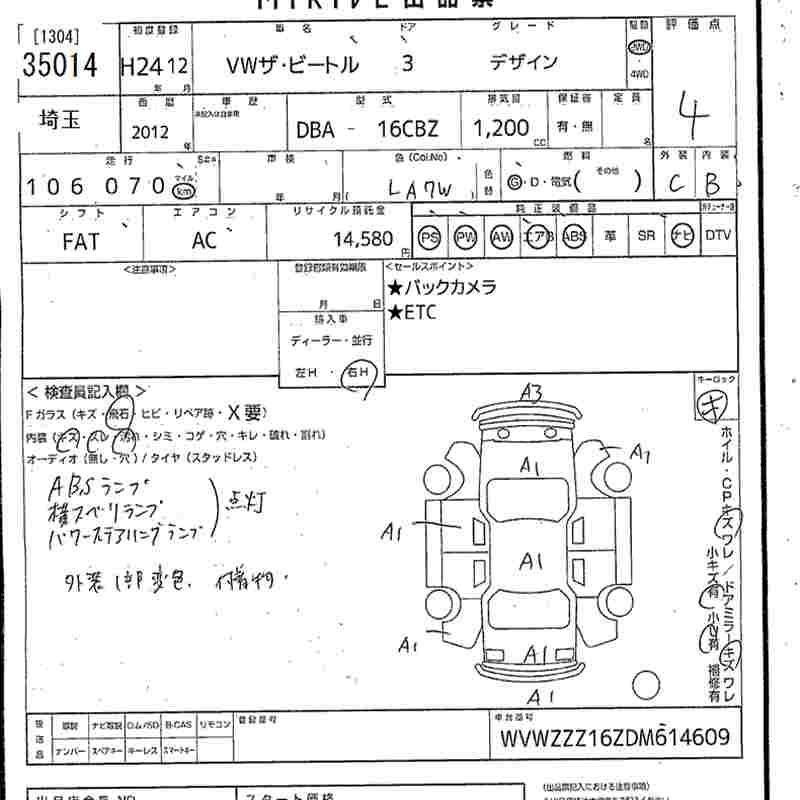 [1304]
35014
埼玉
初度登録
H24 12
年 月
車名
VWザ・ビートル
ドア
3
グレード
デザイン
駆動
2WD
4WD
評価点
4
西暦
2012
年
車歴
型式
DBA - 16CBZ
排気量
1,200
CC
保証書
有・無
定員
名
走行
106 070
マイル
km
車検
年 月
色(Col.No)
LA7W
色替
燃料
G・D・電気(その他 )
外装
C
内装
B
シフト
FAT
エアコン
AC
リサイクル預託金
14,580
円
純正装備品
PS PW AW エアB ABS 革 SR ナビ
DTV
<注意事項>
登録書類有効期限
月 日
輸入車
ディーラー・並行
左H ・ 右H
<セールスポイント>
★バックカメラ
★ETC
キーロック
キ
< 検査員記入欄 >
Fガラス(キズ・飛石・ヒビ・リペア跡・X要)
内装(キズ・スレ・汚れ・シミ・コゲ・穴・キレ・破れ・割れ)
オーディオ(無し・穴)/タイヤ(スタッドレス)
ABSランプ
横スベリランプ
パワーステアリングランプ
点灯
外装1部変色、付着物.
A3
A1
A1
A1
A1
A1
A1
A1
ホイル・CPキズワレ/ドアミラーキズワレ
小キズ有 小凹有 補修有
後送品
取説 ナビ取説 ロム/SD B-CAS リモコン
ナンバー スペアキー キーレス スマートキー
登録番号
車台番号
WVWZZZ16ZDM614609
スタート価格
(出品票記入における注意事項)